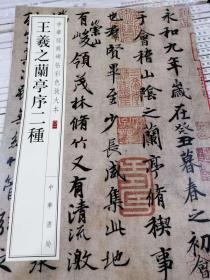 中華經典碑帖彩色放大本
王羲之蘭亭序二種
中華書局
永和九年歲在癸丑暮春之初
于會稽山陰之蘭亭脩稧事
也羣賢畢至少長咸集此地
崇山
有峻領茂林脩竹又有清流激